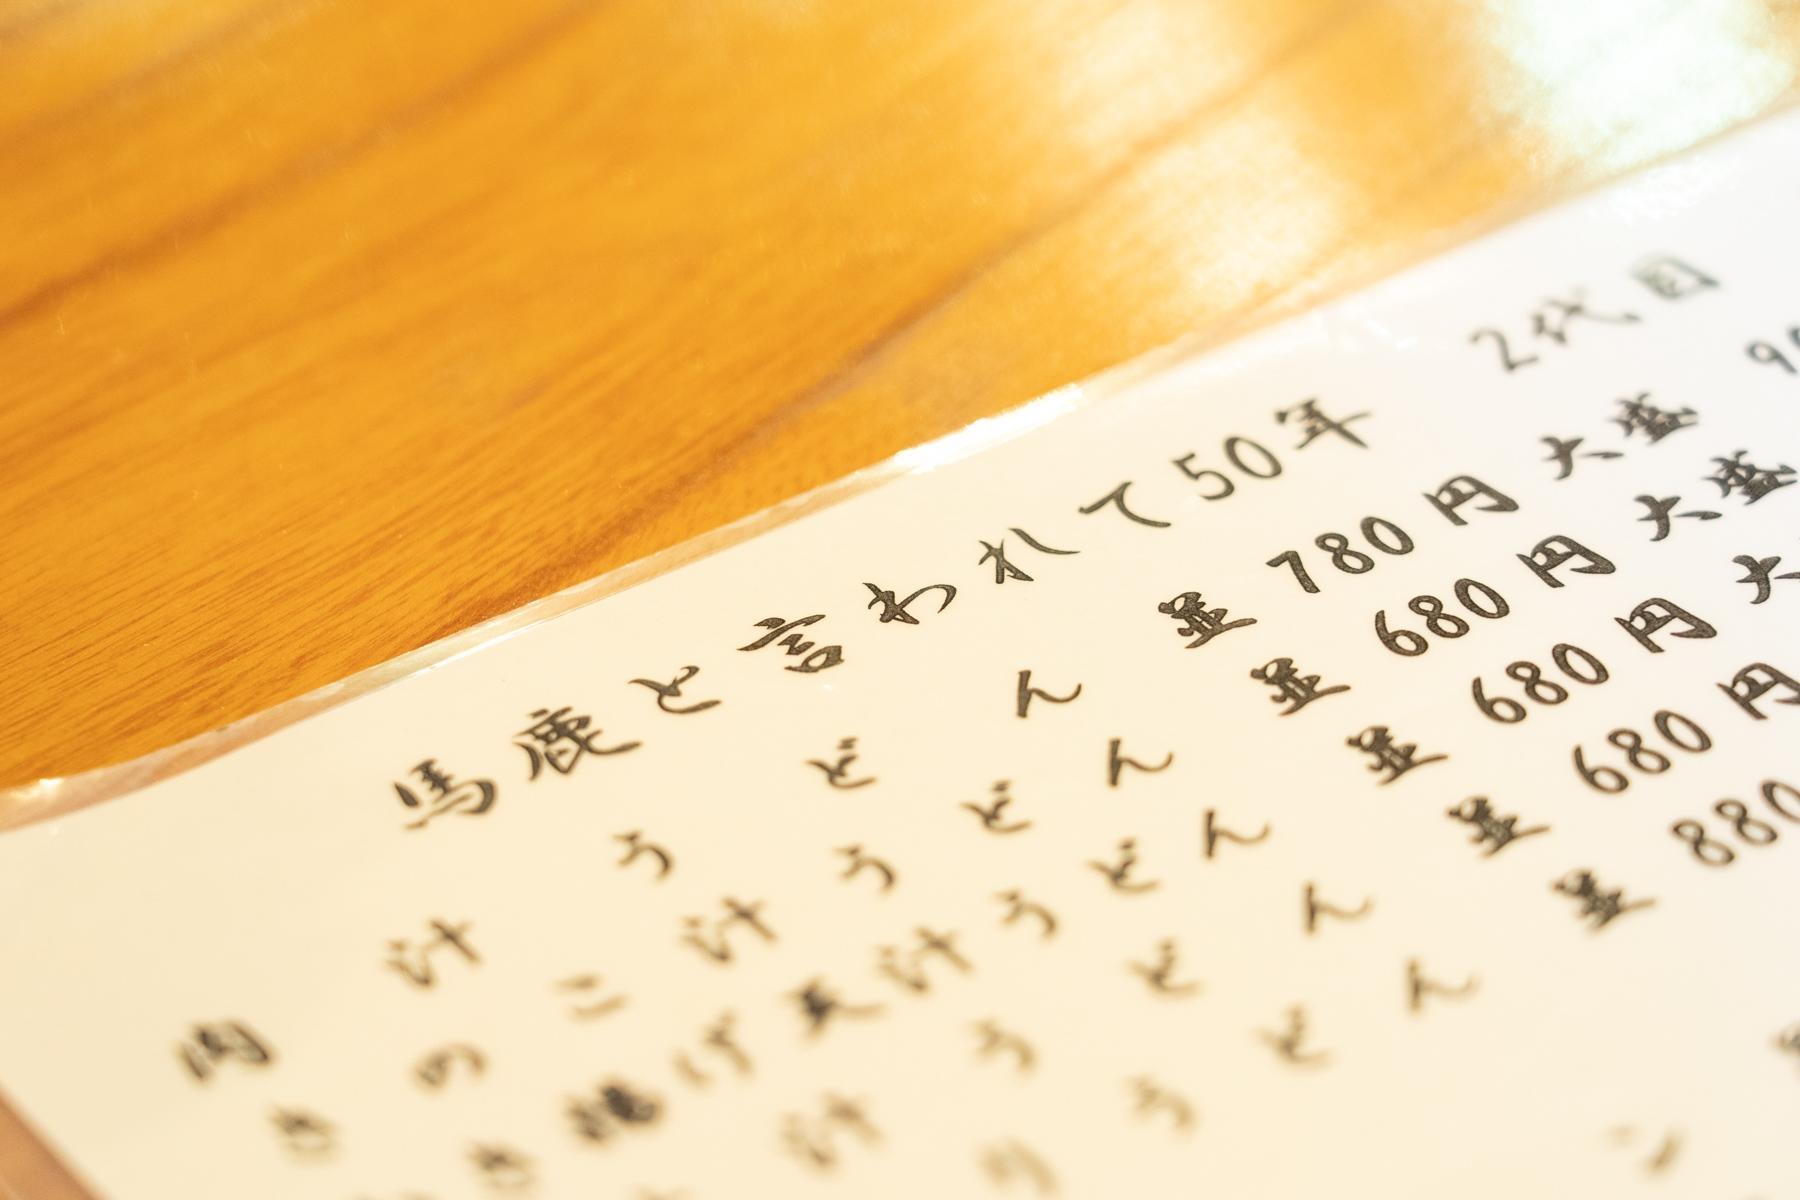 馬鹿と言われて50年 2代目
肉汁うどん 並 780円 大盛
きのこ汁うどん 並 680円 大盛
揚げ玉汁うどん 並 680円 大
汁うどん 並 680円
うどん 並 880